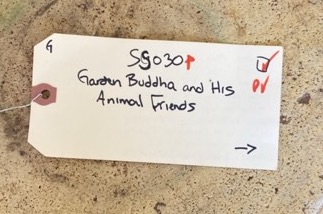 G
SG030P
Garden Buddha and His
Animal Friends
→